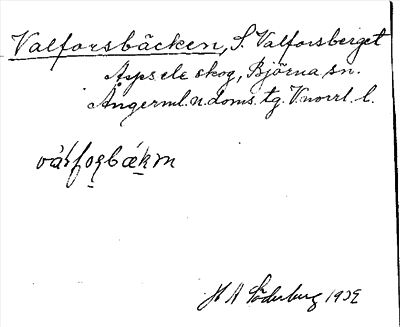 Valforsbäcken, S. Valforsberget
Aspsele skog, Björna sn.
Ångerml. n. doms. tg. V.norrl. l.
H A Söderberg 1932